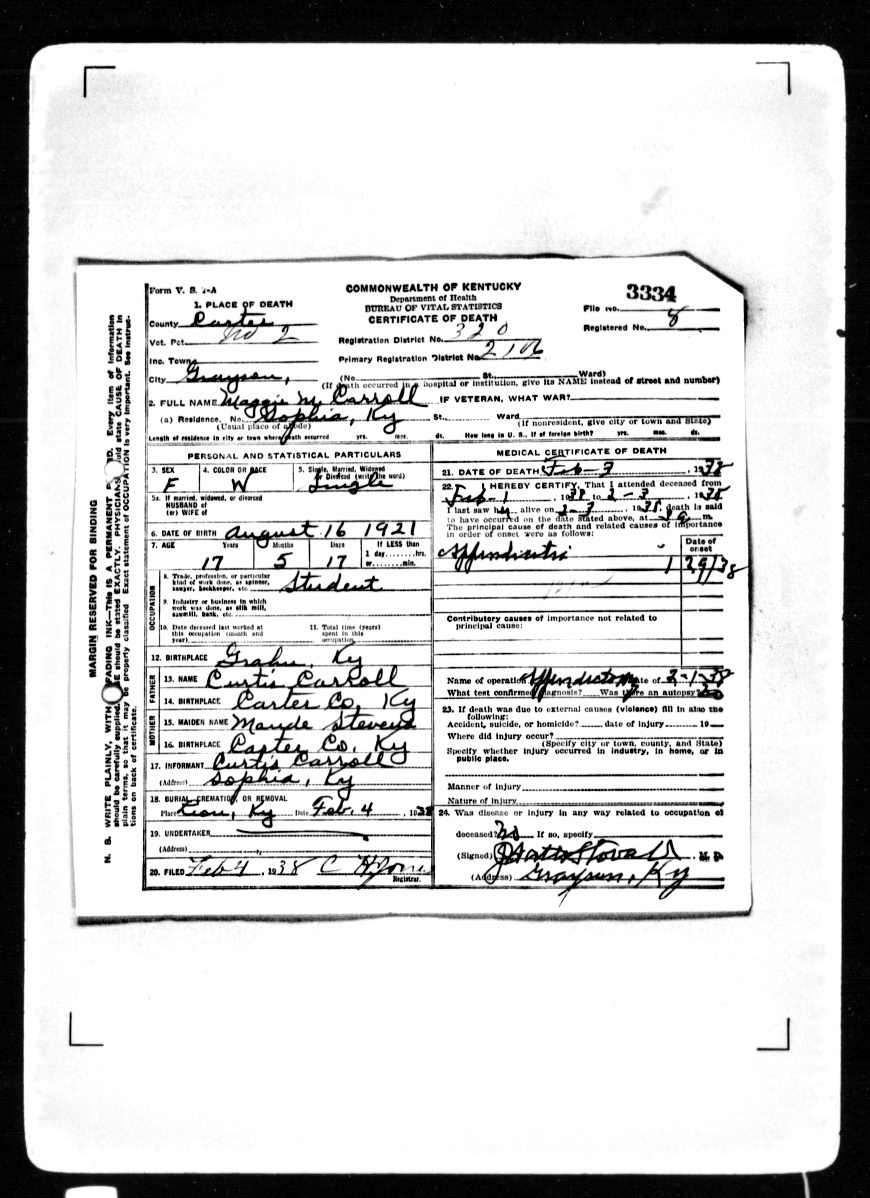 Form V. S. 1-A
COMMONWEALTH OF KENTUCKY
Department of Health
BUREAU OF VITAL STATISTICS
CERTIFICATE OF DEATH
3334
File No.
Registered No. 8
1. PLACE OF DEATH
County Carter
Vot. Pct. No 2
Inc. Town
City Grayson,
Registration District No. 320
Primary Registration District No. 2106
(No. St. Ward)
(If death occurred in a hospital or institution, give its NAME instead of street and number)
2. FULL NAME Maggie M. Carroll IF VETERAN, WHAT WAR?
(a) Residence. No. Sophia, Ky St. Ward
(Usual place of abode) (If nonresident, give city or town and State)
Length of residence in city or town where death occurred yrs. mos. ds. How long in U. S., if of foreign birth? yrs. mos. ds.
PERSONAL AND STATISTICAL PARTICULARS
3. SEX F
4. COLOR OR RACE W
5. Single, Married, Widowed or Divorced (write the word) Single
5a. If married, widowed, or divorced
HUSBAND of
(or) WIFE of
6. DATE OF BIRTH August 16 1921
7. AGE Years Months Days If LESS than
1 day hrs.
or min.
17 5 17
OCCUPATION
8. Trade, profession, or particular
kind of work done, as spinner,
sawyer, bookkeeper, etc. Student
9. Industry or business in which
work was done, as silk mill,
sawmill, bank, etc.
10. Date deceased last worked at
this occupation (month and
year)
11. Total time (years)
spent in this
occupation
12. BIRTHPLACE Grahn, Ky
FATHER
13. NAME Curtis Carroll
14. BIRTHPLACE Carter Co, Ky
MOTHER
15. MAIDEN NAME Maude Stevens
16. BIRTHPLACE Carter Co, Ky
17. INFORMANT Curtis Carroll
(Address) Sophia, Ky
18. BURIAL, CREMATION, OR REMOVAL
Place Ky Date Feb. 4, 1938
19. UNDERTAKER
(Address)
20. FILED Feb 4, 1938 C H Jones
Registrar.
MEDICAL CERTIFICATE OF DEATH
21. DATE OF DEATH Feb-3, 1938
22. I HEREBY CERTIFY, That I attended deceased from
Feb-1, 1938 to 2-3, 1938
I last saw h alive on 2-3, 1938, death is said
to have occurred on the date stated above, at m.
The principal cause of death and related causes of importance
in order of onset were as follows:
Date of
onset
Appendicitis 1/29/38
Contributory causes of importance not related to
principal cause:
Name of operation Appendictomy Date of 2-1-38
What test confirmed diagnosis? Was there an autopsy? No
23. If death was due to external causes (violence) fill in also the
following:
Accident, suicide, or homicide? date of injury 19
Where did injury occur?
(Specify city or town, county, and State)
Specify whether injury occurred in industry, in home, or in
public place.
Manner of injury
Nature of injury
24. Was disease or injury in any way related to occupation of
deceased? No If so, specify
(Signed) J Watts Stovall, M. D.
(Address) Grayson, Ky
MARGIN RESERVED FOR BINDING
N. B. WRITE PLAINLY, WITH UNFADING INK—This is a PERMANENT RECORD. Every item of information
should be carefully supplied. AGE should be stated EXACTLY. PHYSICIANS should state CAUSE OF DEATH in
plain terms, so that it may be properly classified. Exact statement of OCCUPATION is very important. See instruc-
tions on back of certificate.